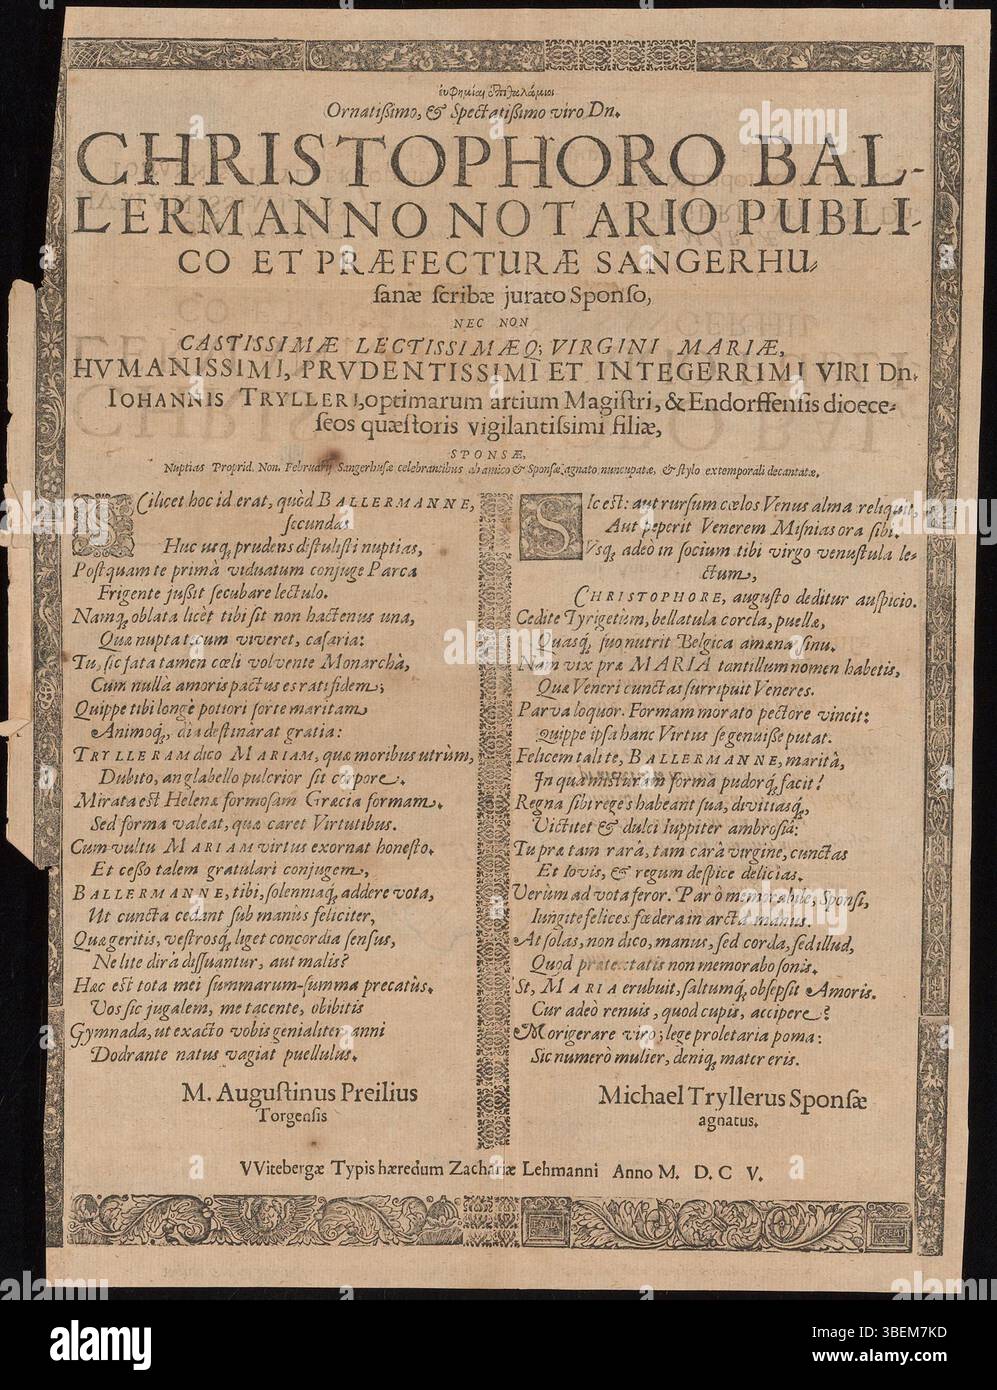 εὐφημίαι ἐπιθαλάμιοι
Ornatiſsimo, & Spectatiſsimo viro Dn.
CHRISTOPHORO BAL-
LERMANNO NOTARIO PUBLI-
CO ET PRÆFECTURÆ SANGERHU-
ſanæ ſcribæ jurato Sponſo,
NEC NON
CASTISSIMÆ LECTISSIMÆQ; VIRGINI MARIÆ,
HVMANISSIMI, PRVDENTISSIMI ET INTEGERRIMI VIRI Dn.
IOHANNIS TRYLLERI, optimarum artium Magiſtri, & Endorffenſis diœce-
ſeos quæſtoris vigilantiſsimi filiæ,
SPONSÆ,
Nuptias Proprid. Non. Februarij Sangerhuſæ celebrantibus ab amico & Sponſæ agnato nuncupatæ, & ſtylo extemporali decantatæ.
SCilicet hoc id erat, quòd BALLERMANNE,
ſecundas
Huc usq; prudens diſtuliſti nuptias,
Poſtquam te primâ viduatum conjuge Parca
Frigente juſsit ſecubare lectulo.
Namq; oblata licèt tibi ſit non hactenus una,
Quæ nupta tecum viveret, caſaria:
Tu, ſic fata tamen cœli volvente Monarchâ,
Cum nulla amoris pactus es rati fidem;
Quippe tibi longè potiori ſorte maritam
Animoq; dia deſtinarat gratia:
TRYLLERAM dico MARIAM, quæ moribus utrùm,
Dubito, an glabello pulcrior ſit corpore.
Mirata eſt Helenæ formoſam Græcia formam.
Sed forma valeat, quæ caret Virtutibus.
Cum vultu MARIAM virtus exornat honeſto.
Et ceſſo talem gratulari conjugem,
BALLERMANNE, tibi, ſolenniaq; addere vota,
Ut cuncta cedant ſub manus feliciter,
Quæ geritis, veſtrosq; liget concordia ſenſus,
Ne lite dirâ diſſuantur, aut malis?
Hæc eſt tota mei ſummarum-ſumma precatûs.
Vos ſic jugalem, me tacente, obibitis
Gymnada, ut exacto vobis genialiter anni
Dodrante natus vagiat puellulus.
M. Auguſtinus Preilius
Torgenſis
SIc eſt: aut rurſum cœlos Venus alma reliquit,
Aut peperit Venerem Miſnias ora ſibi.
Vsq; adeò in ſocium tibi virgo venuſtula le-
ctum,
CHRISTOPHORE, auguſto deditur auſpicio.
Cedite Tyrigetûm, bellatula corcla, puellæ,
Quasq; ſuo nutrit Belgica amæna ſinu.
Nam vix præ MARIA tantillum nomen habetis,
Quæ Veneri cunctas ſurripuit Veneres.
Parva loquor. Formam morato pectore vincit:
Quippe ipſa hanc Virtus ſe genuiſſe putat.
Felicem tali te, BALLERMANNE, maritâ,
In quâ miſturam forma pudorq; facit!
Regna ſibi reges habeant ſua, divitiasq;
Victitet & dulci Iuppiter ambroſiâ:
Tu præ tam rarâ, tam carâ virgine, cunctas
Et Iovis, & regum deſpice delicias.
Verùm ad vota feror. Par ô memorabile, Sponſi,
Iungite felices fœdera in arcta manus.
At ſolas, non dico, manus, ſed corda, ſed illud,
Quod prætextatis non memorabo ſonis.
St, MARIA erubuit, ſaltumq; obſepſit Amoris.
Cur adeò renuis, quod cupis, accipere?
Morigerare viro; lege proletaria poma:
Sic numerò mulier, deniq; mater eris.
Michael Tryllerus Sponſæ
agnatus.
VVitebergæ Typis hæredum Zachariæ Lehmanni Anno M. D. C V.
alamy
Image ID: 3BEM7KD
www.alamy.com